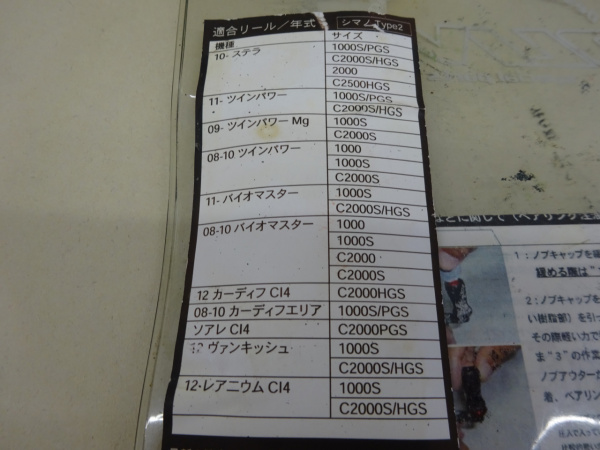 適合リール／年式 シマノType2
機種 サイズ
10- ステラ 1000S/PGS
C2000S/HGS
2000
C2500HGS
11- ツインパワー 1000S/PGS
C2000S/HGS
09- ツインパワー Mg 1000S
C2000S
08-10 ツインパワー 1000
1000S
C2000S
11- バイオマスター 1000S
C2000S/HGS
08-10 バイオマスター 1000
1000S
C2000
C2000S
12 カーディフ CI4 C2000HGS
08-10 カーディフエリア 1000S/PGS
ソアレ CI4 C2000PGS
12 ヴァンキッシュ 1000S
C2000S/HGS
12-レアニウム CI4 1000S
C2000S/HGS
1：ノブキャップを
緩める際は"
2：ノブキャップを
い樹脂部）を引っ
その際軽い力で
ま"3"の作業
ノブアウターか
着、ベアリン